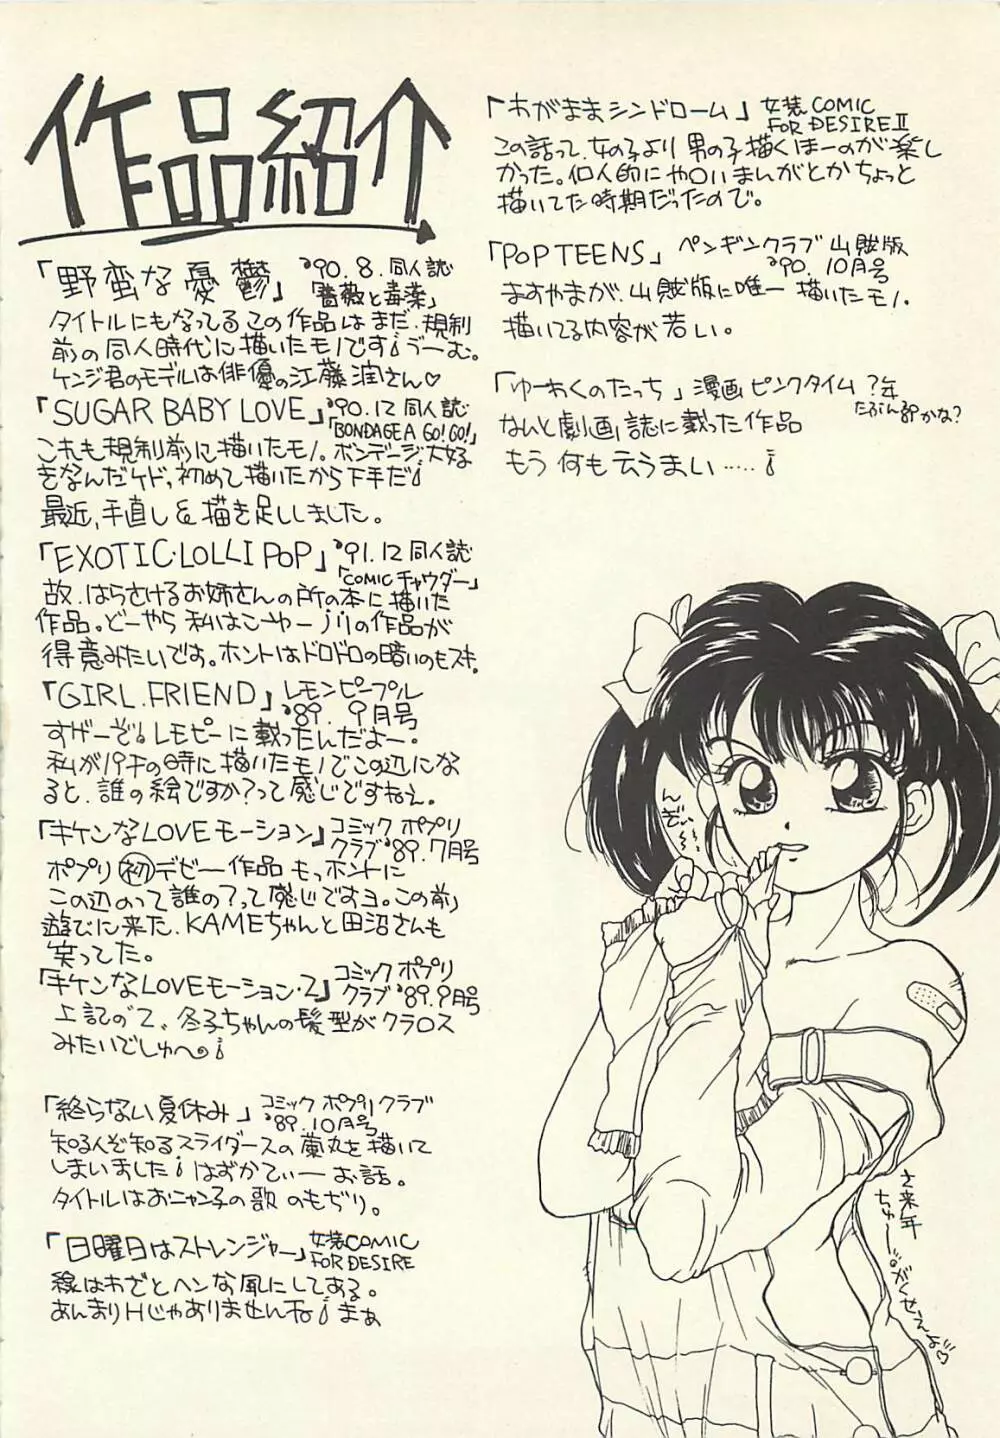 作品紹介
「野蛮な憂鬱」'90.8.同人誌
「薔薇と毒薬」
タイトルにもなってるこの作品はまだ、規制
前の同人時代に描いたモノです!うーむ。
ケンジ君のモデルは俳優の江藤潤さん♡
「SUGAR BABY LOVE」'90.12 同人誌
「BONDAGE A GO!GO!」
これも規制前に描いたモノ。ボンデージ大好
きなんだケド、初めて描いたから下手だ!
最近、手直し&描き足ししました。
「EXOTIC・LOLLI POP」'91.12 同人誌
「COMIC チャウダー」
故.はらさけるお姉さんの所の本に描いた
作品。どーやら私はこーゆーノリの作品が
得意みたいです。ホントはドロドロの暗いのもスキ。
「GIRL.FRIEND」レモンピープル
'89.9月号
すげーぞ。レモピーに載ったんだよー。
私がパチの時に描いたモノでこの辺にな
ると、誰の絵ですか?って感じですねぇ。
「キケンなLOVEモーション」コミック ポプリ
クラブ'89.7月号
ポプリ初デビー作品 もっホントに
この辺のって誰の?って感じですヨ。この前
遊びに来た、KAMEちゃんと田沼さんも
笑ってた。
「キケンなLOVEモーション・2」コミック ポプリ
クラブ'89.9月号
上記の2、冬子ちゃんの髪型がクラロス
みたいでしゅへの!
「終らない夏休み」コミック ポプリクラブ
'89.10月号
知る人ぞ知るスライダースの蘭丸を描いて
しまいました!はずかてぃーお話。
タイトルはおニャン子の歌のもぢり。
「日曜日はストレンジャー」女装COMIC
FOR DESIRE
線はわざとヘンな風にしてある。
あんまりHじゃありませんね!まぁ
「わがままシンドローム」女装COMIC
FOR DESIRE II
この話って、女の子より男の子描くほーのが楽し
かった。個人的にや○いまんがとかちょっと
描いてた時期だったので。
「POP TEENS」ペンギンクラブ山賊版
'90.10月号
ますやまが、山賊版に唯一描いたモノ。
描いてる内容が若い。
「ゆーわくのたっち」漫画ピンクタイム ?年
たぶん89かな?
なんと劇画誌に載った作品
もう何も云うまい……!
んぞぃ〜〜
さ来年
ちゅー
がくせえよ♡